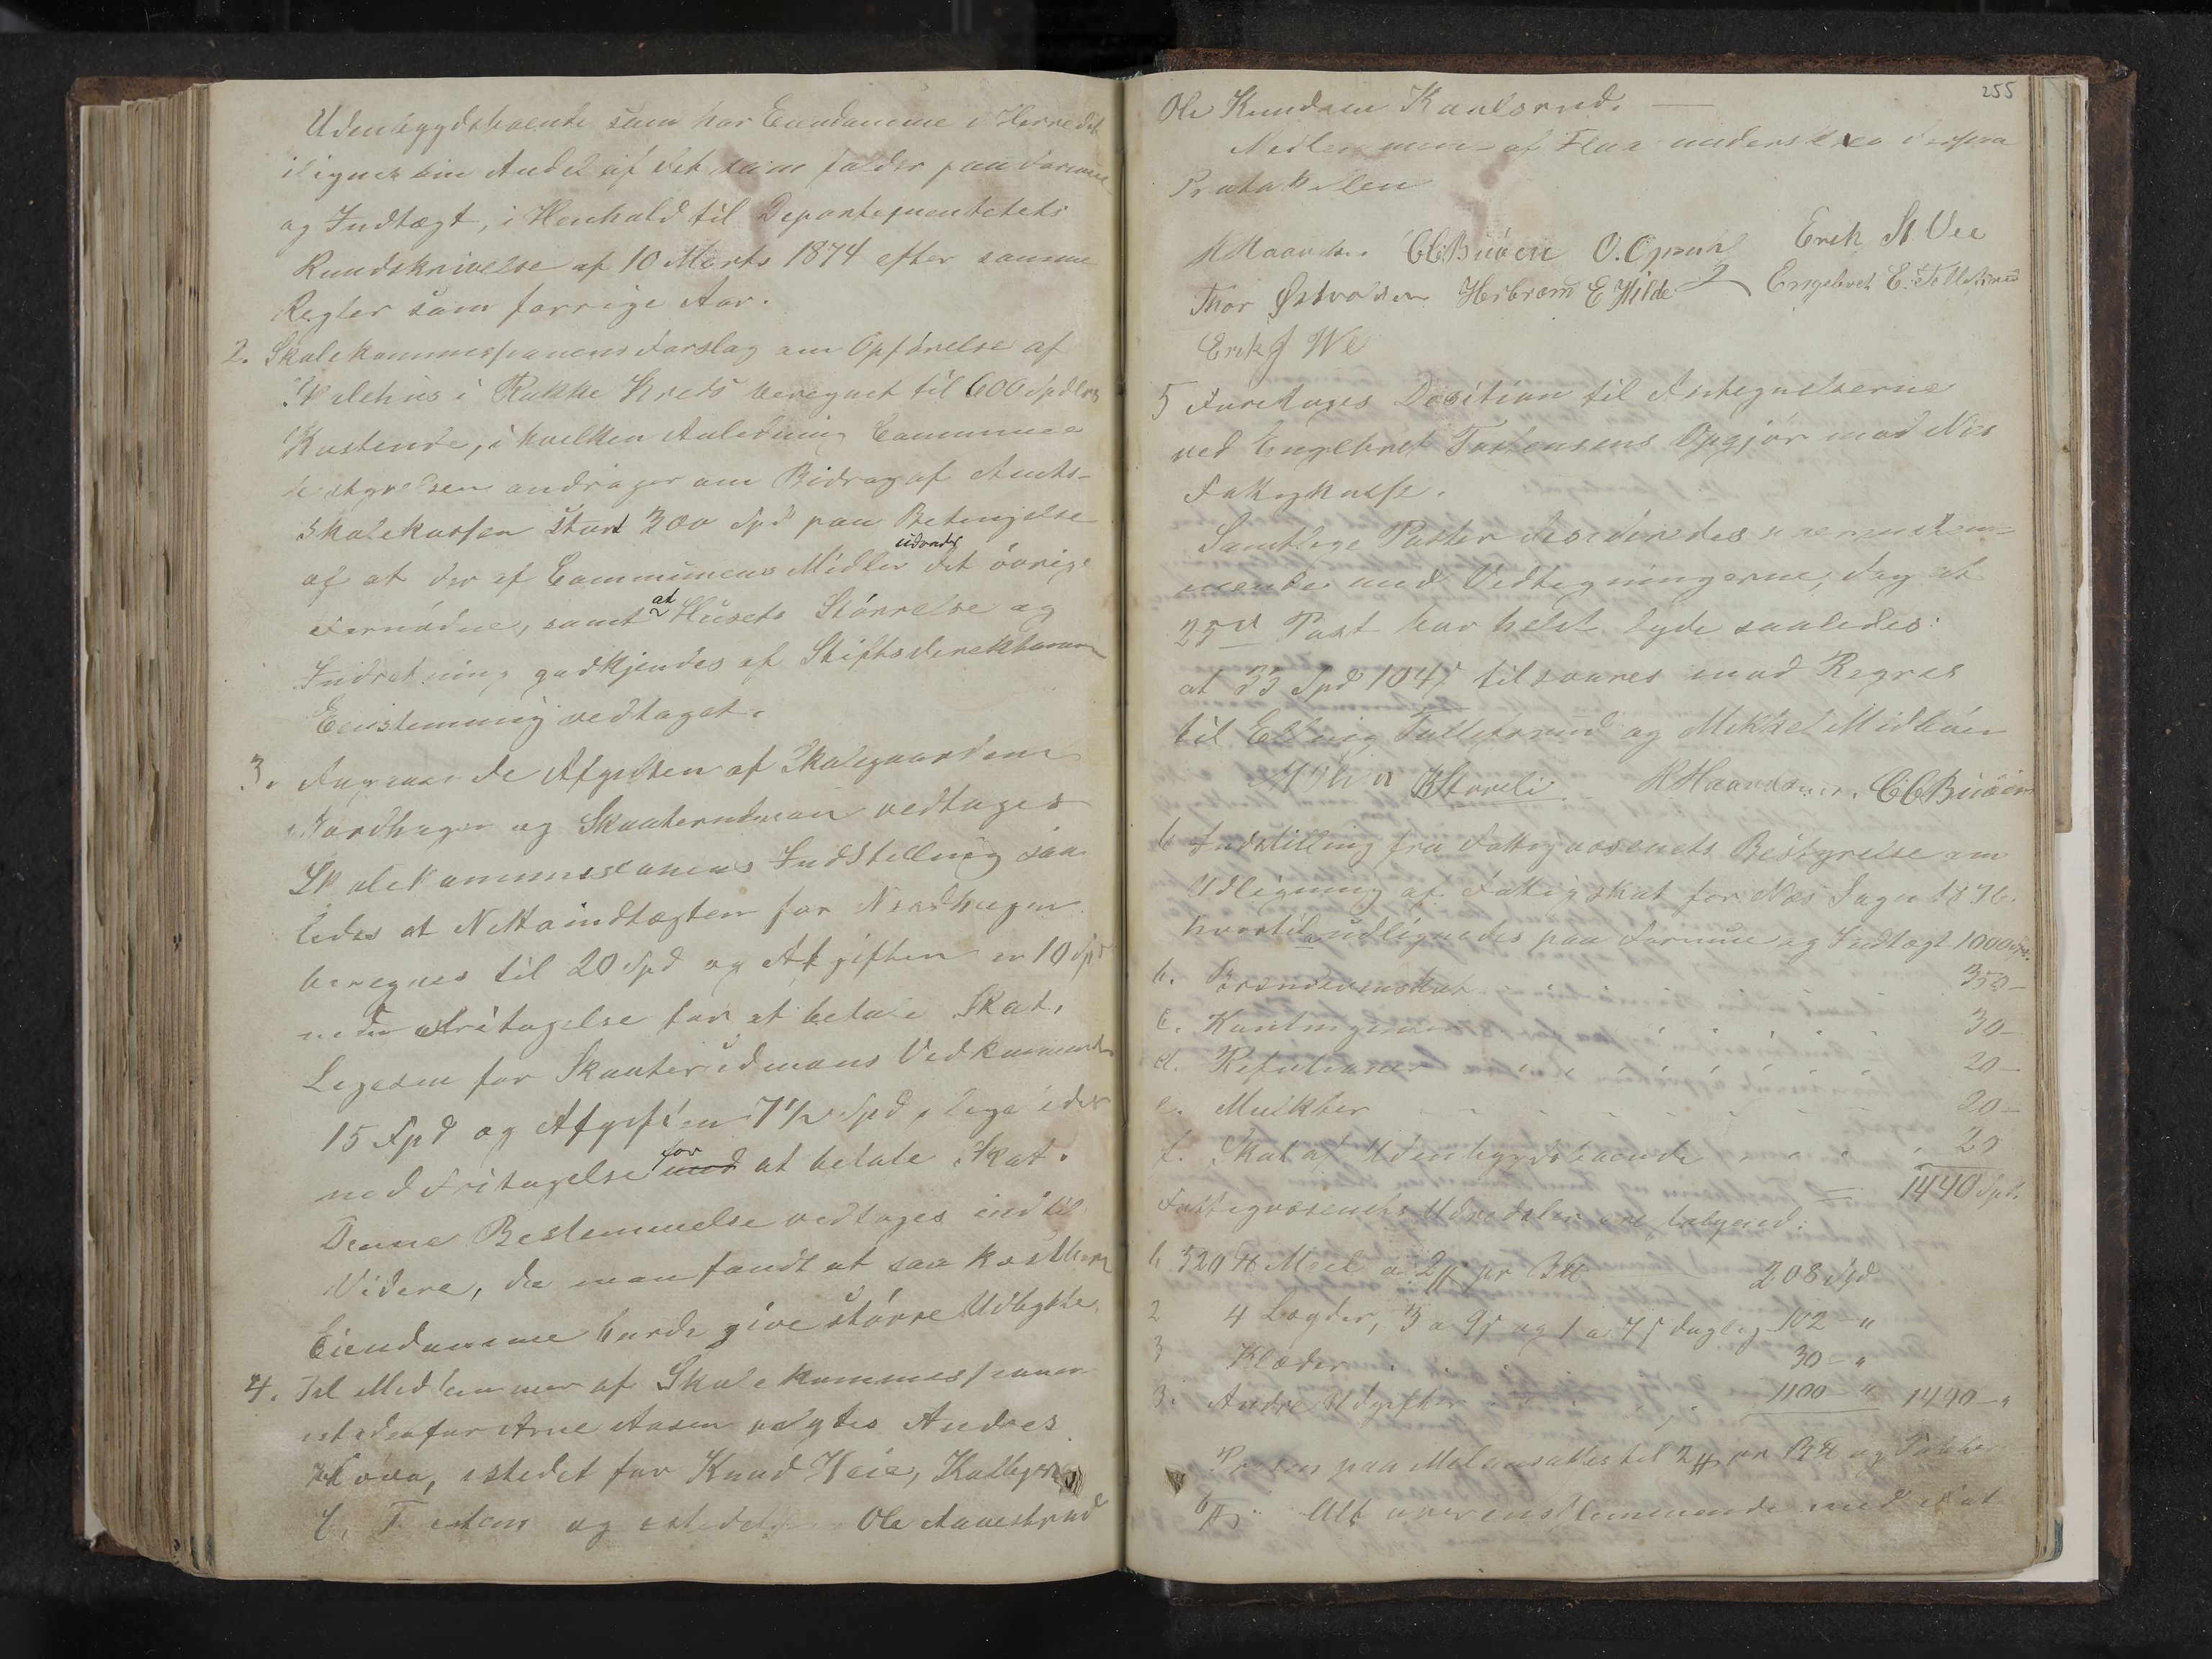 Udenbygdsboende som har Eiendomme i Herredet
ilignes sin Andel af det som falder paa Formue
og Indtægt, i Henhold til Departementets
Rundskrivelse af 10 Marts 1874 efter samme
Regler som forrige Aar.
2. Skolekommissionens Forslag om Opførelse af
Skolehus i Rukke Kreds beregnet til 600 Spdlrs
Kostende, i hvilken Anledning Commune
bestyrelsen andrager om Bidrag af Amts-
skolekassen stort 300 Spd paa Betingelse
af at der af Communens Midler udredes det øvrige
Fornødne, samt at Husets Størrelse og
Indretning godkjendes af Stiftsdirektionen
Eenstemmig vedtaget.
3. Angaaende Afgiften af Skolegaardene
Nordhagen og Skaaterudmoen vedtages
Skolekommissionens Indstilling saa
ledes at Nettoindtægten for Nordhagen
beregnes til 20 Spd og Afgiften er 10 Spd
med Fritagelse for at betale Skat.
Ligesom for Skaaterudmoens Vedkommende
15 Spd og Afgiften 7½ Spd, ligeledes
med Fritagelse for med at betale Skat.
Denne Bestemmelse vedtages indtil
Videre, da man fandt at saa kostbare
Eiendomme burde give større Udbytte.
4. Til Medlemmer af Skolekommissionen
istedenfor Arne Aasen valgtes Andres
Hova, istedet for Knud Heie,
E. T. og istedet Ole Aavestrud
255
Ole Knudsen Kaalsrud.
Medlemmer af Flaa underskrev
Protokollen
HHaandsen. CCBuøen O. Opsahl Erik St Vee
Thor Østvolden Herbrand E Hilde Engebret E. Tollefsrud
Erik J We
5 Foretoges Decition til Antegnelserne
ved Engebret Torstensens Opgjør med Nes
Fattigkasse.
Samtlige Poster desideredes overenstem-
mende med Vedtegningerne, dog at
25de Post kar helst lyde saaledes:
at 33 Spd 104 s tilsvares mod Regres
til Elling Tollefsrud og Mikkel Midbøen
KStoveli HHaandsen. CCBuøen
6 Indstilling fra Fattigvæsenets Bestyrelse om
Udligning af Fattigskat for Næs Sogn 1876.
Hvortil a udlignedes paa Formue og Indtægt 1000 Spd.
b. Brændevinsskat 350 -
c. Kontingenter 30 -
d. Refutioner 20 -
e. Mulkter 20 -
f. Skat af Udenbygdsboende 20
= 1440 Spd.
Fattigvæsenets Udredsler ere følgende:
1. 520 Meel a 2 pr B 208 Spd
2 4 Lægder, 3 a 9 s og 1 a 7 s daglig 102 - "
3 Klæder 30 - "
3. Andre Udgifter 1100 - " 1440 - "
Prisen paa Mel ansattes til 2 pr B og
6 Alt overensstemmende med